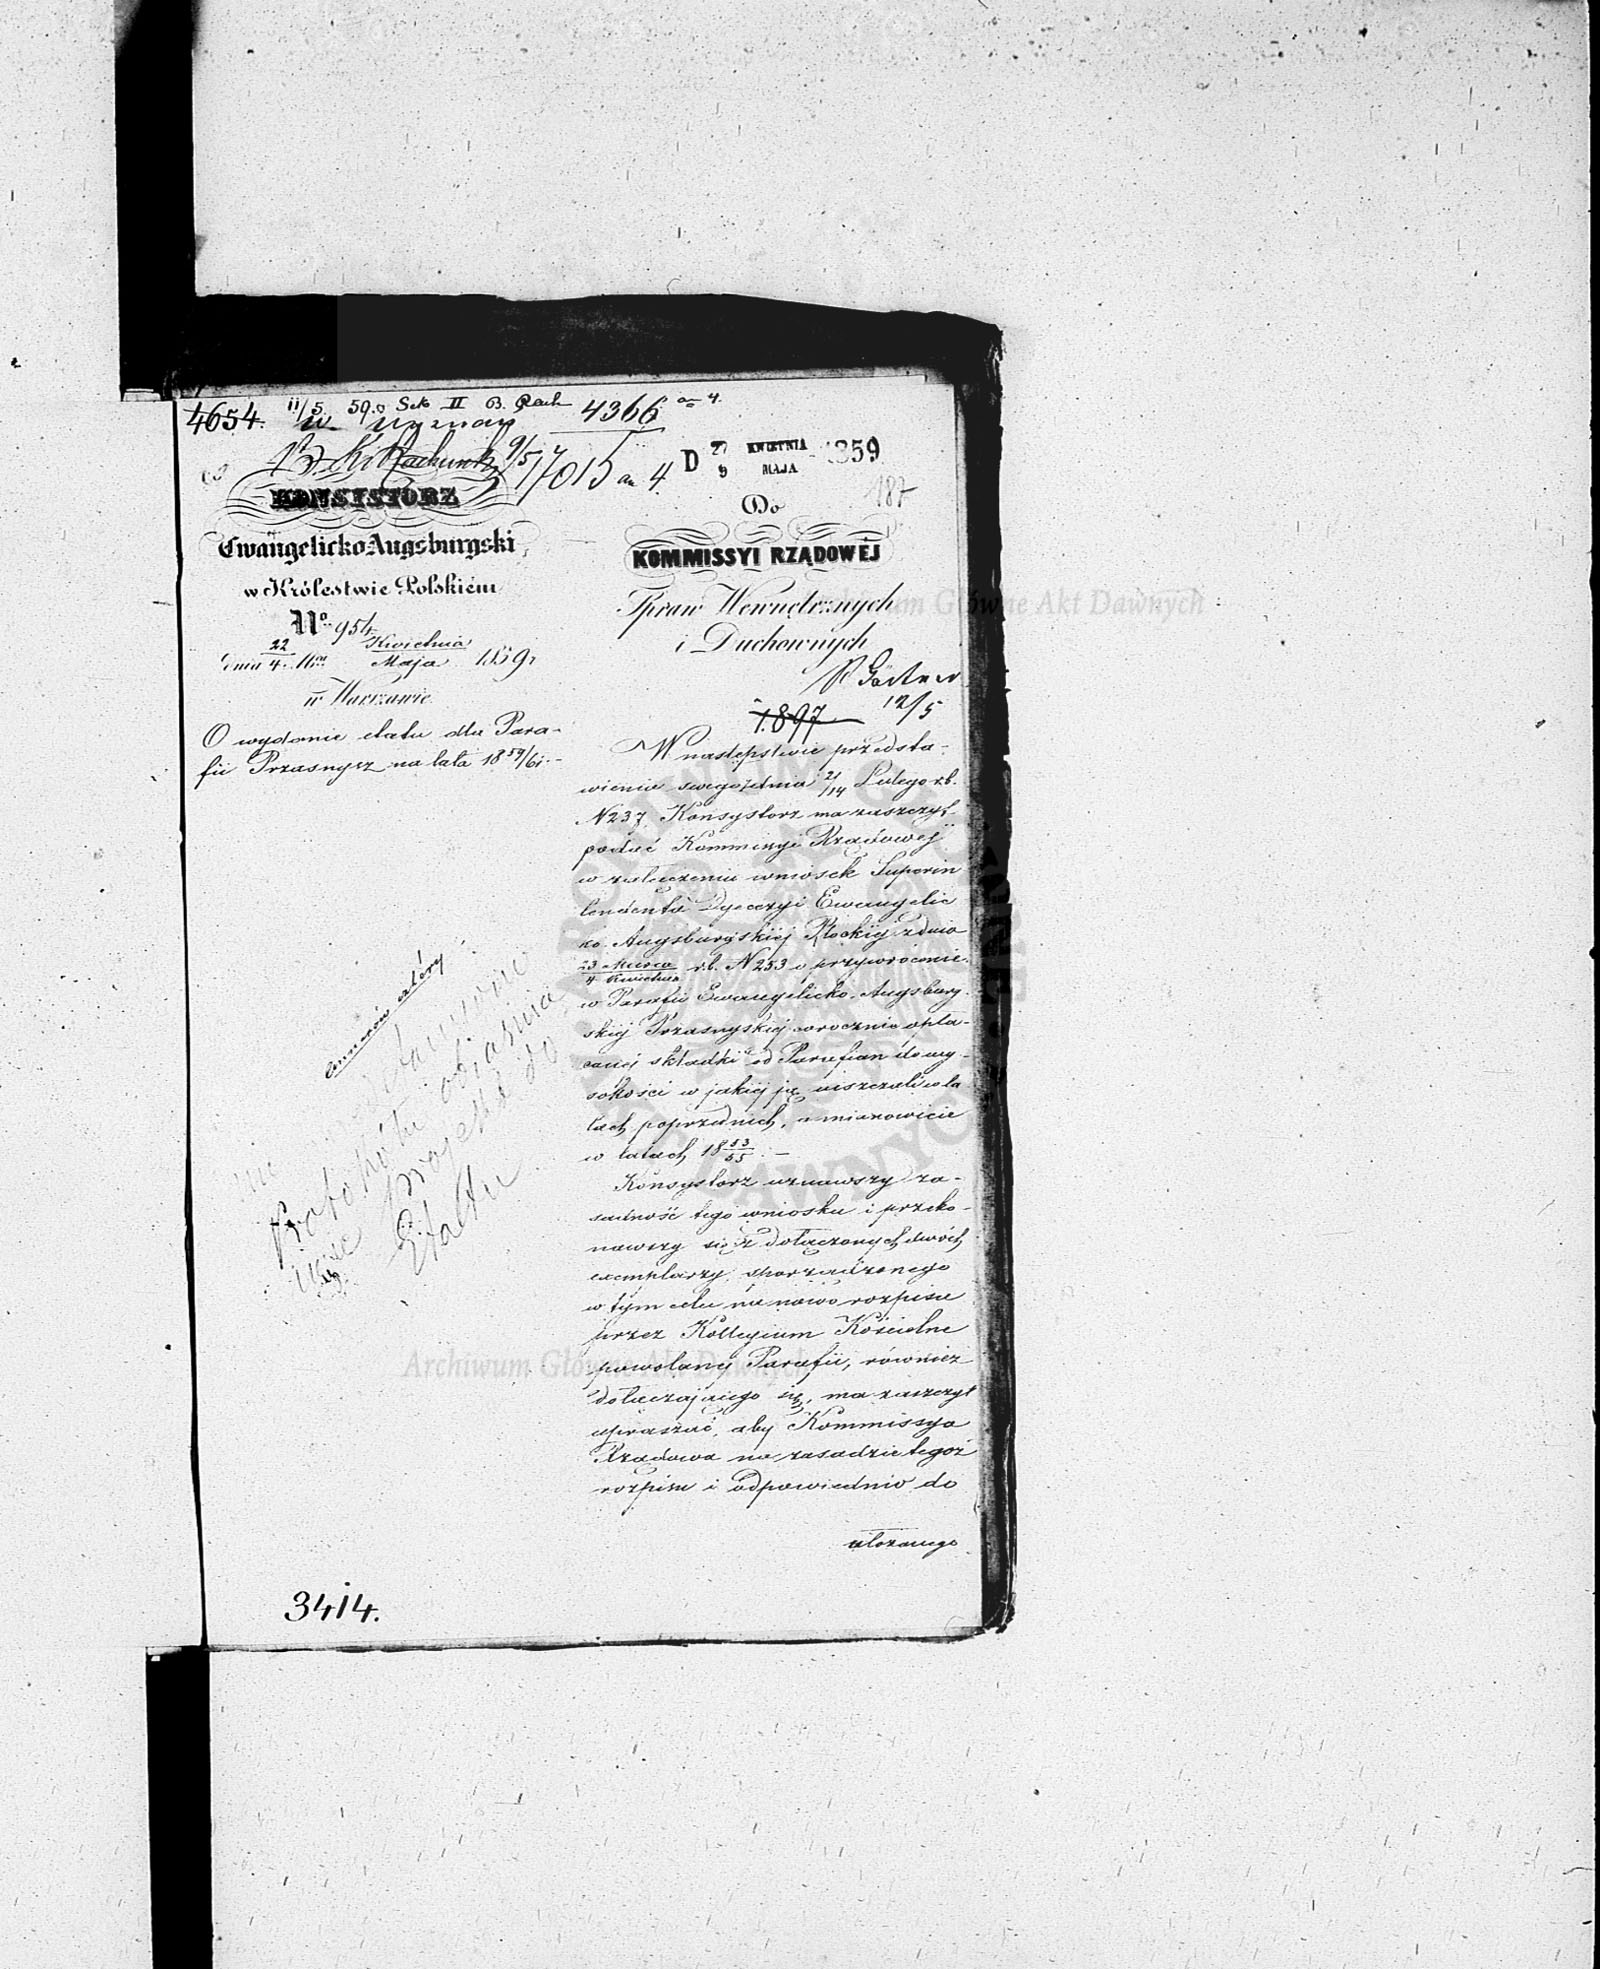 4654. 11/5 59. Sek II B. Rach 4366 an 4.
W Wyznań
B. K. Rachunk 9/5 17015 an 4
D 27 KWIETNIA 1859
9 MAJA
187
KONSYSTORZ
Ewangelicko Augsburgski
w Królestwie Polskiém
No. 954
dnia 22 Kwietnia
4 Maja 1859 r
w Warszawie
O wydanie etatu dla Para-
fii Przasnysz na lata 18 59/61. -
Do
KOMMISSYI RZĄDOWÉJ
Spraw Wewnętrznych
i Duchownych
12/5
1897
W następstwie przedsta-
wienia swego z dnia 2/14 Lutego r.b.
N 237, Konsystorz ma zaszczyt
podać Kommissyi Rządowej
w załączeniu wniosek Superin
tendenta Dyecezyi Ewangelic
ko. Augsburgskiej Płockiej z dnia
23 Marca
4 Kwietnia r.b. N 253 o przywrócenie
w Parafii Ewangelicko. Augsburg-
skiej Przasnyskiej corocznie opła-
canej składki od Parafian do wy-
sokości w jakiej ją uiszczali w la
tach poprzednich, a mianowicie
w latach 18 53/55. -
Konsystorz uznawszy za-
sadność tego wniosku i przeko-
nawszy się z dołączonych dwóch
exemplarzy sporządzonego
w tym celu na nowo rozpisu
przez Kollegium Kościelne
powołanej Parafii, również
dołączającego się, ma zaszczyt
upraszać, aby Kommissya
Rządowa na zasadzie tegoż
rozpisu i odpowiednio do
ułożonego
annexów cztéry
Protokółu objaśnia
projektu do
Etatu
3414.
Archiwum Główne Akt Dawnych
Archiwum Główne Akt Dawnych